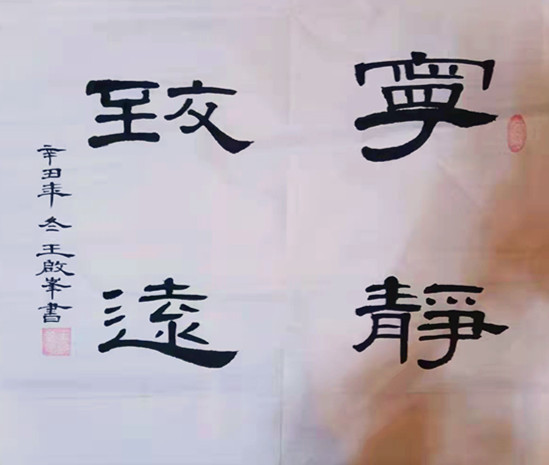 寧靜
致遠
辛丑年冬王啟峯書